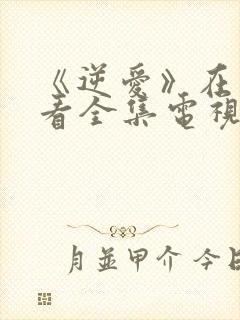 《逆愛》在
看全集電視
月並甲介 今日